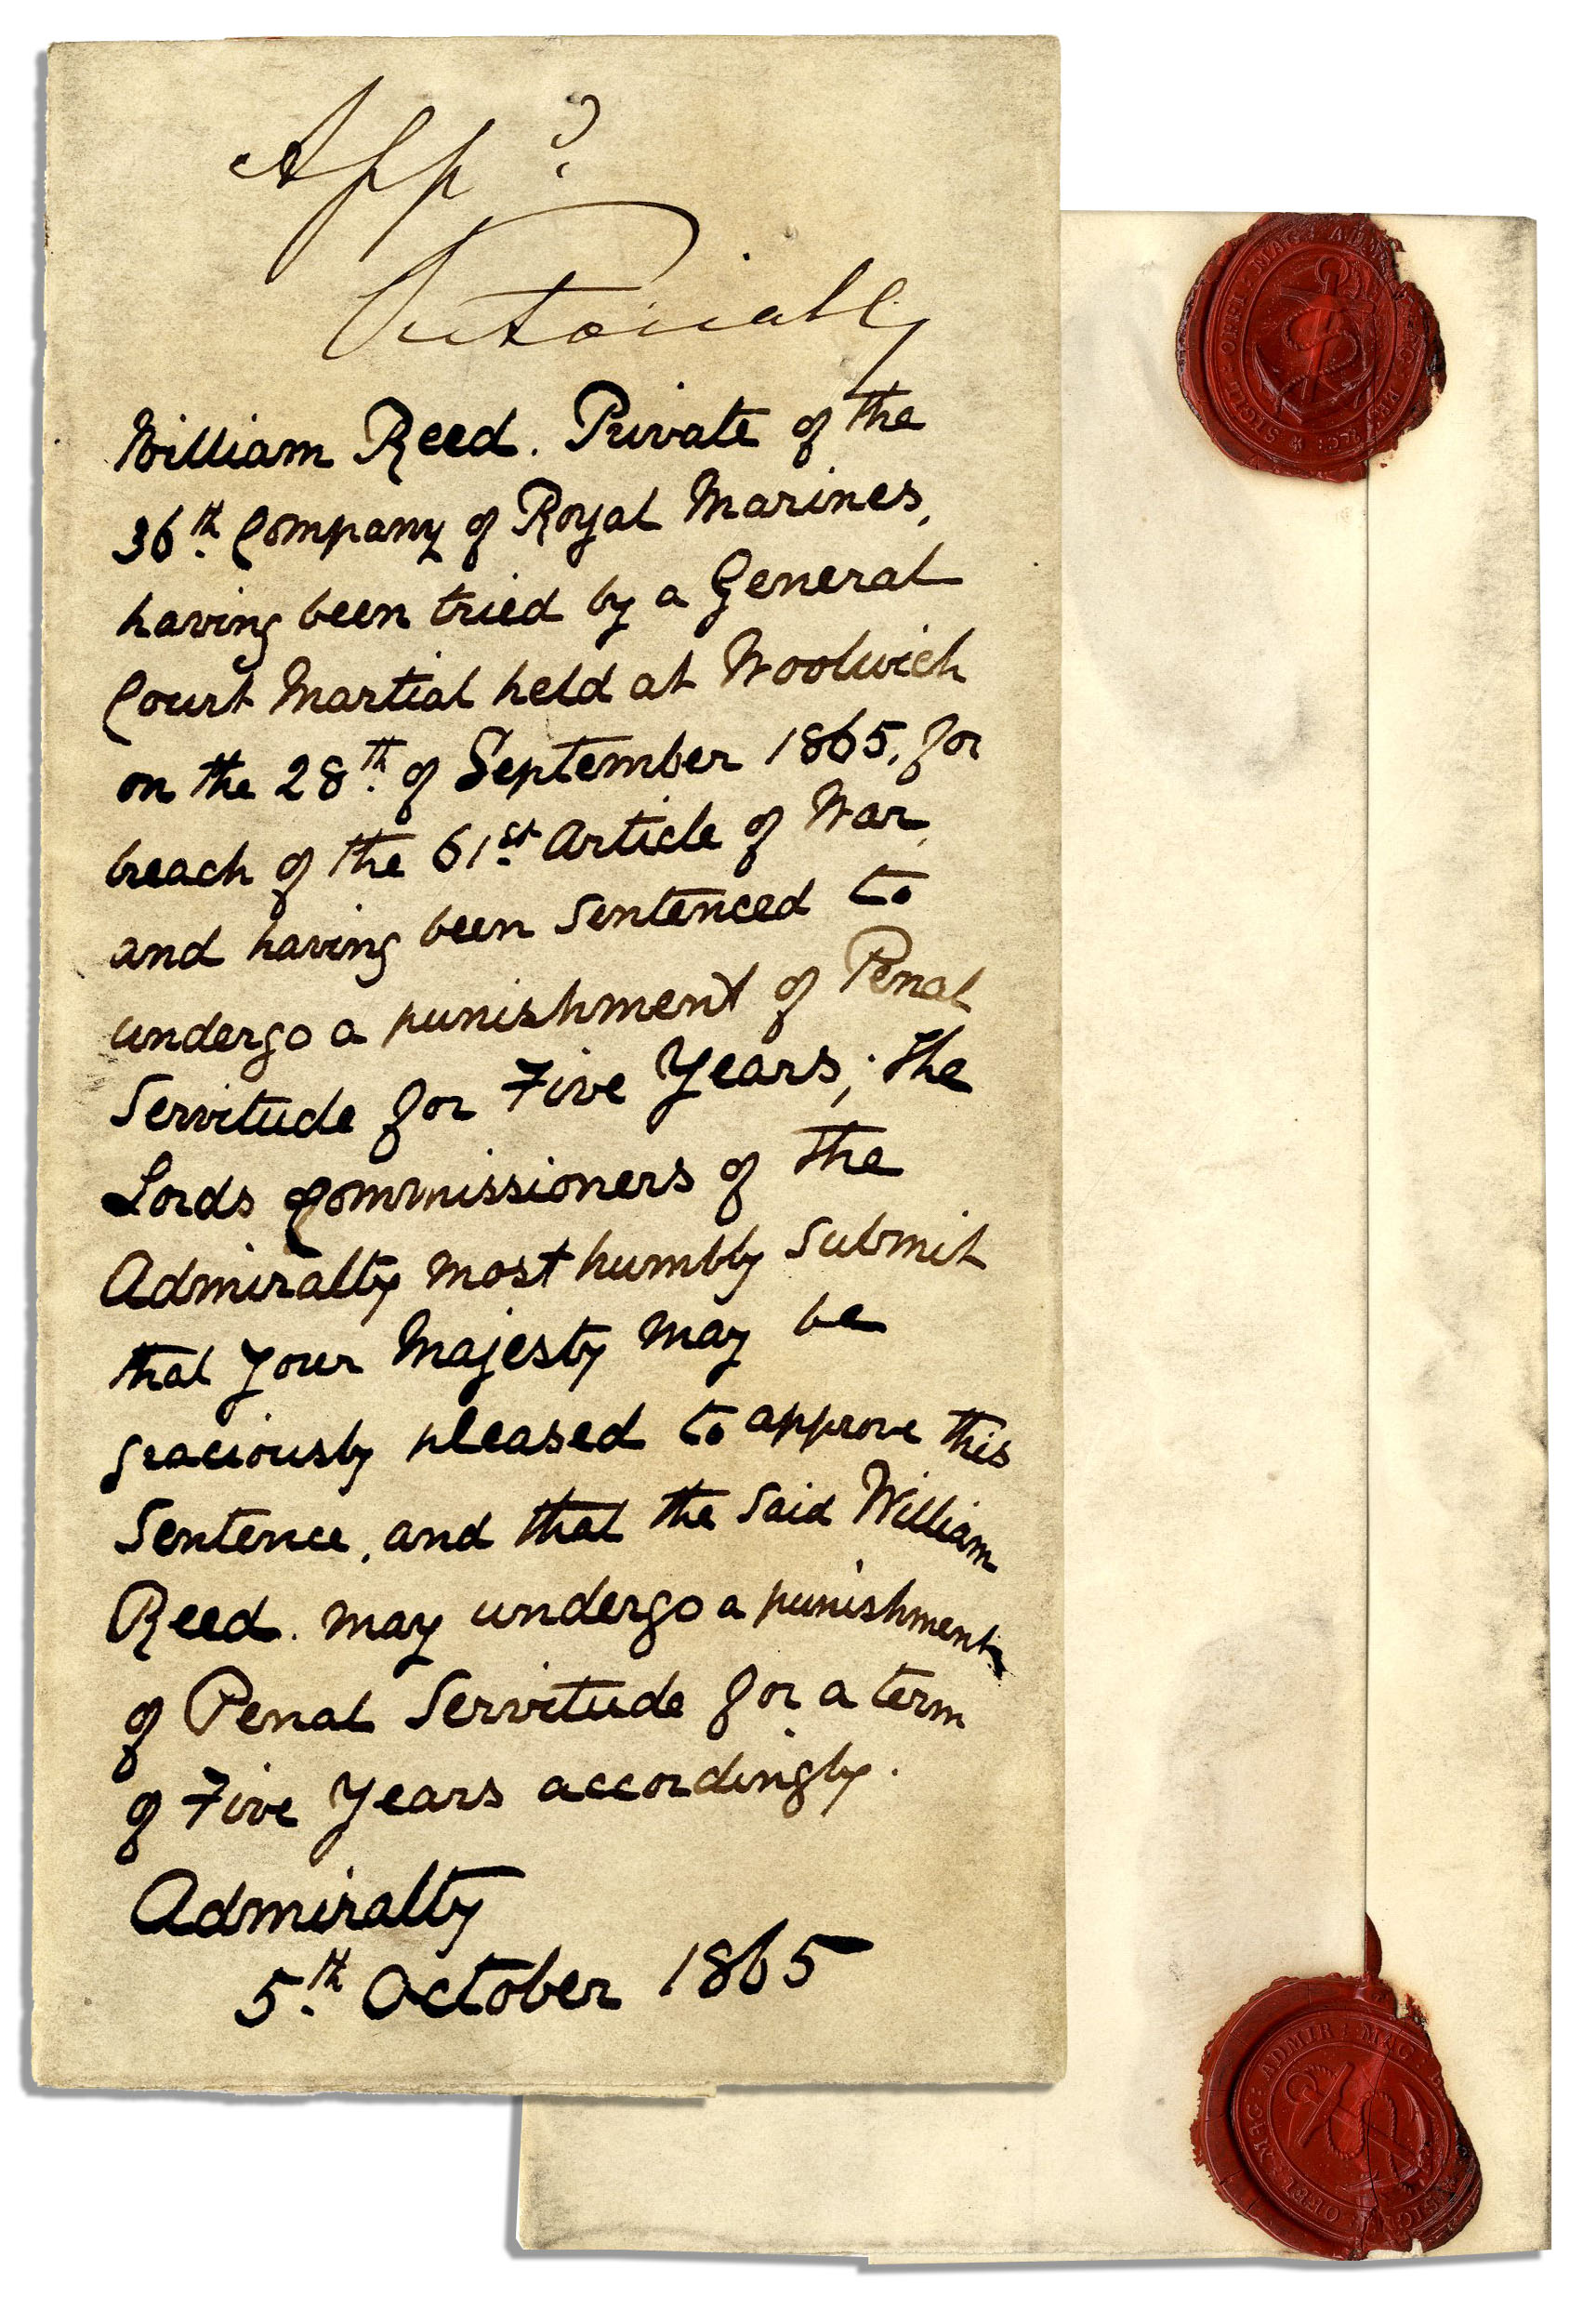 Appd.
Victoria R
William Reed. Private of the
36th. Company of Royal Marines,
having been tried by a General
Court Martial held at Woolwich
on the 28th. of September 1865, for
breach of the 61st. Article of War,
and having been sentenced to
undergo a punishment of Penal
Servitude for Five Years; the
Lords Commissioners of the
Admiralty most humbly submit
that Your Majesty may be
graciously pleased to approve this
Sentence, and that the said William
Reed. may undergo a punishment
of Penal Servitude for a term
of Five Years accordingly.
Admiralty
5th. October 1865
SIGILL: OFFI: MAG: ADM
MAG: ADMIR: MAG:
OFFI: